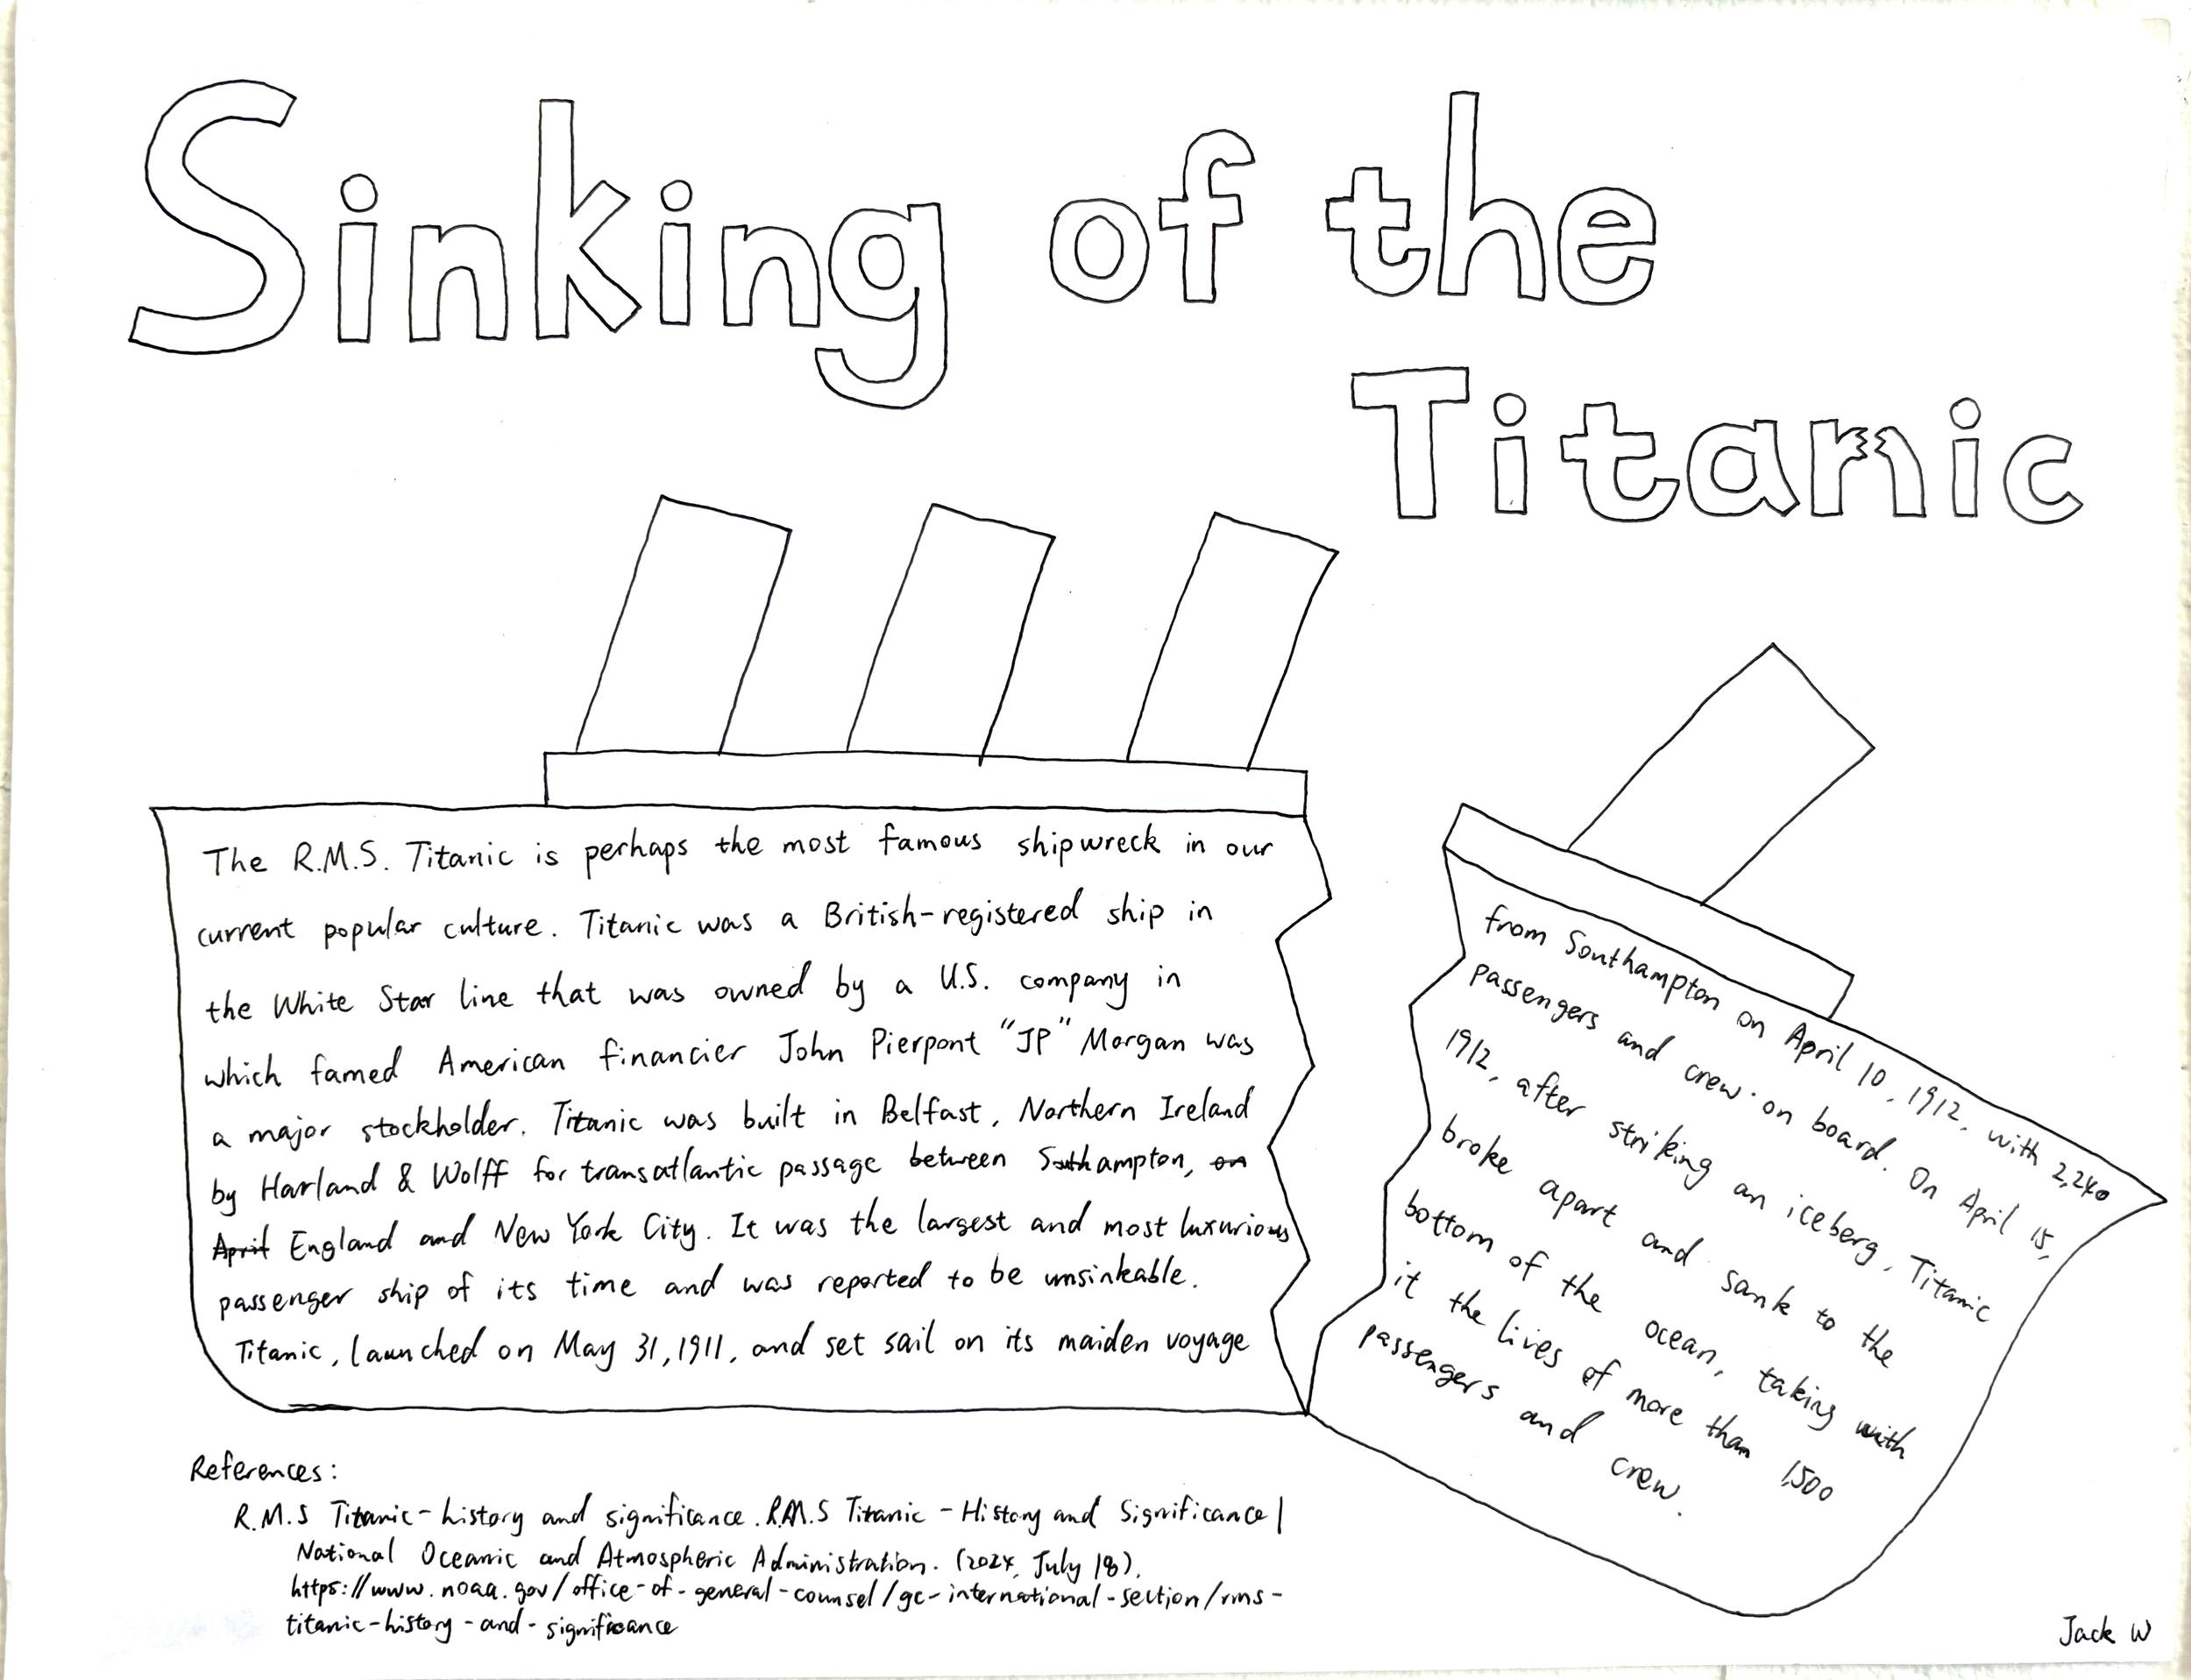 Sinking of the
Titanic
The R.M.S. Titanic is perhaps the most famous shipwreck in our
current popular culture. Titanic was a British-registered ship in
the White Star line that was owned by a U.S. company in
which famed American financier John Pierpont "JP" Morgan was
a major stockholder. Titanic was built in Belfast, Northern Ireland
by Harland & Wolff for transatlantic passage between Southampton, on
April England and New York City. It was the largest and most luxurious
passenger ship of its time and was reported to be unsinkable.
Titanic, launched on May 31, 1911, and set sail on its maiden voyage
from Southampton on April 10, 1912, with 2,240
passengers and crew on board. On April 15,
1912, after striking an iceberg, Titanic
broke apart and sank to the
bottom of the ocean, taking with
it the lives of more than 1,500
passengers and crew.
References:
R.M.S Titanic-history and significance. R.M.S Titanic - History and Significance |
National Oceanic and Atmospheric Administration. (2024, July 18).
https://www.noaa.gov/office-of-general-counsel/gc-international-section/rms-
titanic-history-and-significance
Jack W